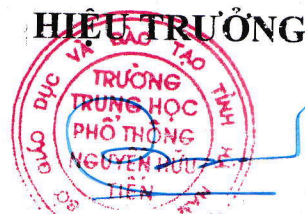 HIỆU TRƯỞNG
SỞ GIÁO DỤC VÀ ĐÀO TẠO TỈNH
TRƯỜNG
TRUNG HỌC
PHỔ THÔNG
NGUYỄN HỮU
TIẾN